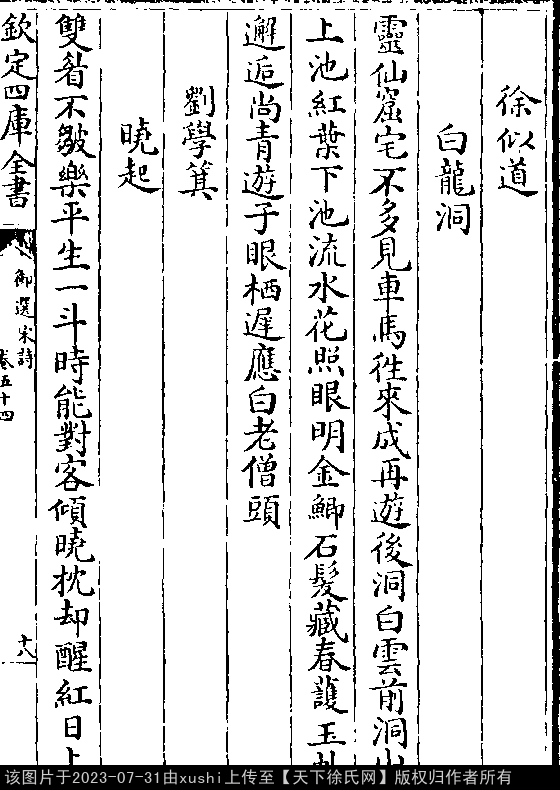 徐似道
白龍洞
靈仙窟宅不多見車馬徃來成再遊後洞白雲前洞
上池紅葉下池流水花照眼明金鯽石髮藏春護玉
邂逅尚青遊子眼栖遲應白老僧頭
劉學箕
曉起
雙眉不皺樂平生一斗時能對客傾曉枕却醒紅日上
欽定四庫全書
御選宋詩
卷五十四
十八
该图片于2023-07-31由xushi上传至【天下徐氏网】版权归作者所有